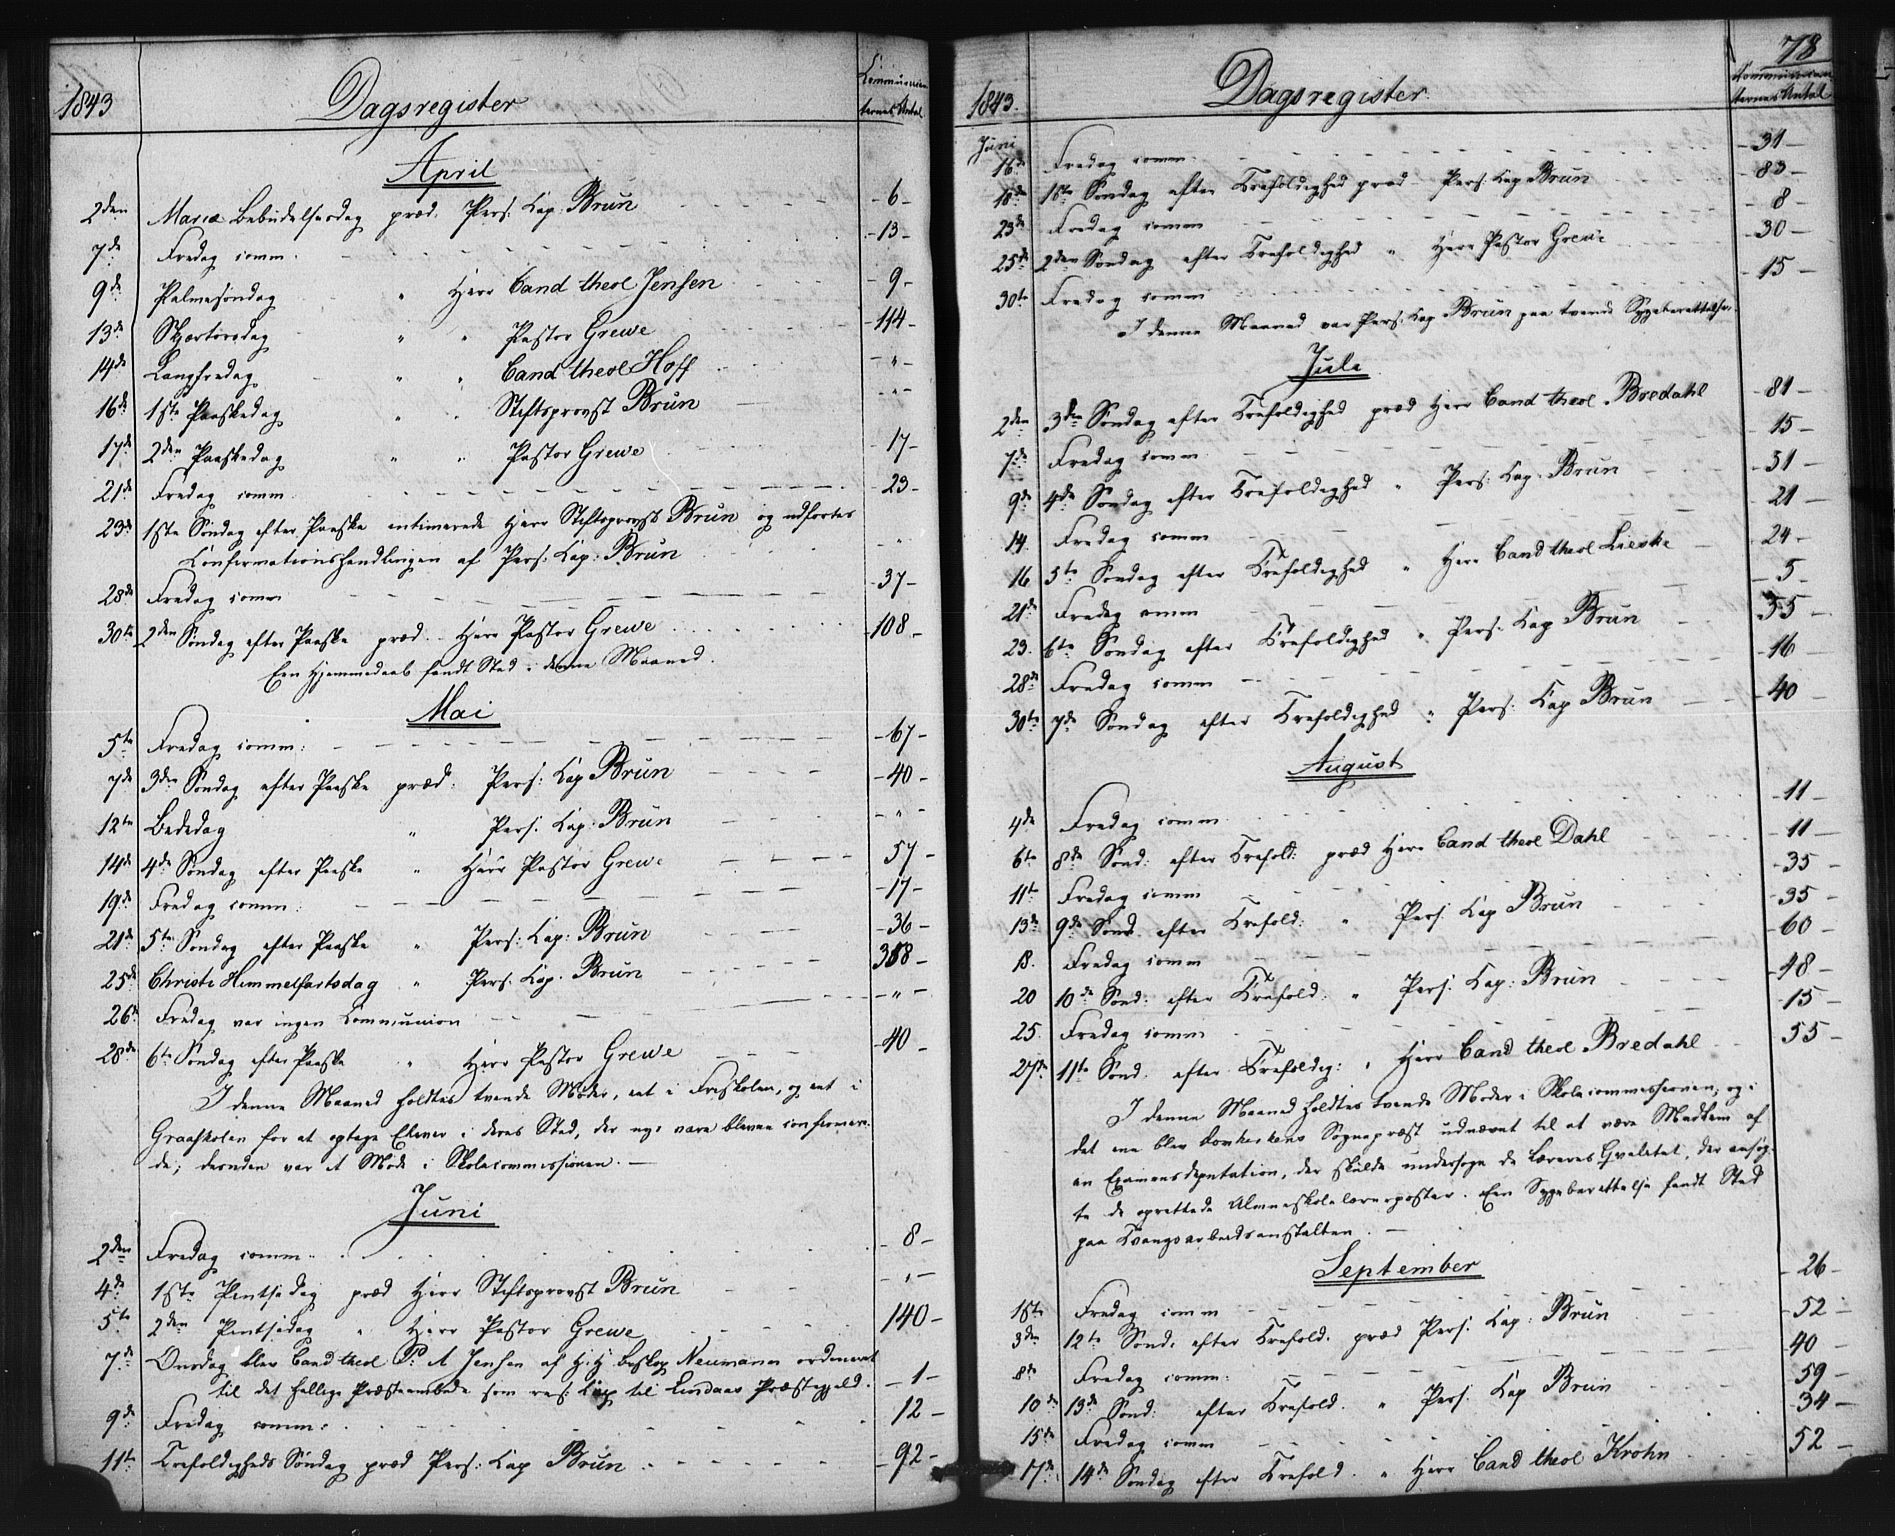 1843
Dagsregister
Communican
ternes Antal
April
2den Mariæ Bebudelsesdag præd. Pers: Cap. Brun - 6 -
7de Fredag comm. - 13 -
9de Palmesøndag " Herr Cand theol Jensen - 9 -
13de Skjærtorsdag " " Pastor Grewe - 114 -
14de Langfredag " " Cand theol Hoff - " -
16de 1ste Paaskedag " Stiftsprovst Brun - " -
17de 2den Paaskedag " " Pastor Grewe - 17 -
21de Fredag comm. - 23 -
23de 1ste Søndag efter Paaske intimerede Herr Stiftsprovst Brun og udførtes
Confirmationshandlingen af Pers: Cap: Brun - " -
28de Fredag comm - 37 -
30te 2den Søndag efter Paaske præd. Herr Pastor Grewe - 108 -
Een Hjemmedaab fandt Sted i denne Maaned.
Mai
5te Fredag comm: - 67 -
7de 3die Søndag efter Paaske præd: Pers: Cap Brun - 40 -
12te Bededag " Pers: Cap: Brun - " -
14de 4de Søndag efter Paaske " Herr Pastor Grewe 57 -
19de Fredag comm: - 17 -
21de 5te Søndag efter Paaske " Pers: Cap: Brun - 36 -
25de Christi Himmelfartsdag " Pers: Cap. Brun 388 -
26de Fredag var ingen Communion - " -
28de 6te Søndag efter Paaske " Herr Pastor Grewe 40 -
I denne Maaned holdtes tvende Møder, eet i Friskolen, og eet i
Graaskolen for at optage Elever i deres Sted, der nys vare blevne confirmere-
de; desuden var et Møde i Skolecommissionen. -
Juni
2den Fredag comm - 8 -
4de 1ste Pintsedag præd Herr Stiftsprovst Brun - " -
5te 2den Pintsedag " Herr Pastor Grewe 140 -
7de Onsdag blev Cand theol P. A Jensen af H: H: Biskop Neumann ordineret
til det hellige Præsteembede som res: Cap til Lindaas Præstegjeld. - 1 -
9de Fredag comm: 12 -
11te Trefoldigheds Søndag præd Pers: Cap Brun - 92 -
78
1843.
Dagsregister
Communican
ternes Antal
Juni
16de Fredag comm. - 31 -
18de 1ste Søndag efter Trefoldighed præd Pers: Cap Brun - 83 -
23de Fredag comm - 8 -
25de 2den Søndag efter Trefoldighed " Herr Pastor Grewe - 30 -
30te Fredag comm - 15 -
I denne Maaned var Pers: Cap Brun paa tvende Sygeberettelser.
Juli
2den 3die Søndag efter Trefoldighed præd Herr Cand theol Bredahl - 81 -
7de Fredag comm - 15 -
9de 4de Søndag efter Trefoldighed " Pers: Cap: Brun - 31 -
14. Fredag comm - 21 -
16 5te Søndag efter Trefoldighed " Herr Cand theol Lieske - 24 -
21de Fredag comm - 5 -
23. 6te Søndag efter Trefoldighed " Pers: Cap Brun 35 -
28de Fredag comm - 16 -
30te 7de Søndag efter Trefoldighed " Pers: Cap Brun - 40 -
August
4de Fredag comm - 11 -
6te 8de Sønd: efter Trefold: præd Herr Cand theol Dahl - 11 -
11te Fredag comm - 35 -
13de 9de Sønd. efter Trefold: " Pers: Cap Brun - 35 -
18. Fredag comm - 60 -
20 10de Sønd: efter Trefold: " Pers: Cap: Brun - 48 -
25. Fredag comm - 15 -
27de 11te Sønd. efter Trefoldig: " Herr Cand theol Bredahl 55 -
I denne Maaned holdtes tvende Møder i Skolecommissionen, og i
det ene blev Domkirkens Sognepræst udnævnt til at være Medlem af
en Examensdeputation, der skulde undersøge de Læreres Qvalitet, der ansøg-
te de oprettede Almueskolelærerposter. Een Sygeberettelse fandt Sted
paa Tvangsarbeidsanstalten. -
September
1ste Fredag comm - 26 -
3die 12te Sønd: efter Trefold: præd Pers: Cap: Brun - 52 -
8de Fredag comm: 40 -
10de 13de Sønd: efter Trefold. " Pers: Cap Brun - 59 -
15de Fredag comm - 34 -
17de 14de Søndag efter Trefold. " Herr Cand theol Krohn 52 -